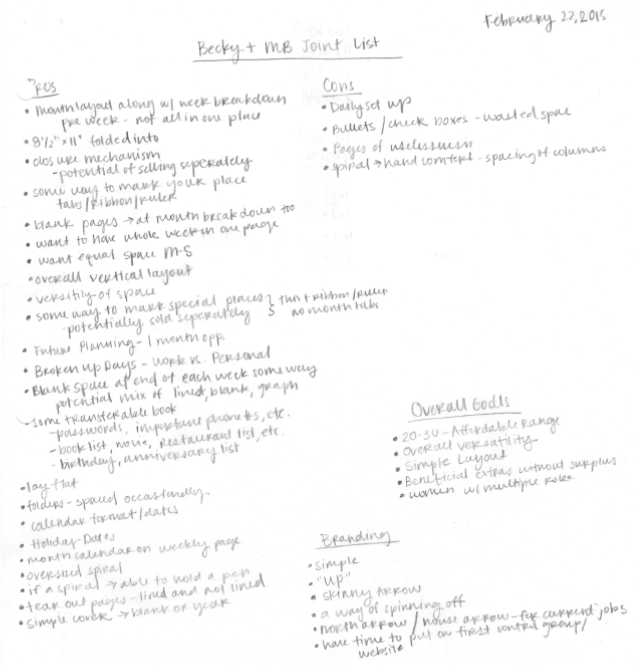 February 27, 2015
Becky + MB Joint List
Pros
• month layout along w/ week breakdown
pre week - not all in one place
• 8 1/2" x 11" folded into
• closure mechanism
- potential of selling seperately
• some way to mark your place
tabs/ribbon/ruler
• blank pages → at month breakdown too
• want to have whole week in one page
• want equal space M-S
• overall vertical layout
• versitily of space
• some way to mark special places } thin + ribbon/ruler
- potentially sold seperately } no month tabs
• Future Planning - 1 month opp.
• Broken up Days - work vs. Personal
• Blank space at end of each week some way
potential mix of lined, blank, graph
- some transferable book
- passwords, important phone #s, etc.
- book list, movie, restaurant list, etc.
- birthday, anniversary list
- lay flat
• folders - spaced occasionally.
• calendar format/dates
• Holiday Dates
• month calendar on weekly page
• oversized spiral
• if a spiral → able to hold a pen
• tear out pages - lined and not lined
• simple cover → blank or year
Cons
• Daily set up
• Bullets / check boxes - wasted space
• Pages of uselessness
• spiral → hand comfort - spacing of columns
Overall Goals
• 20-30 - Affordable Range
• Overall versatility
• Simple Layout
• Beneficial extras without surplus
• women w/ multiple roles
Branding
• simple
• "up"
• skinny arrow
• a way of spinning off
• north arrow / house arrow - for current jobs
• have time to put on first control group/
website